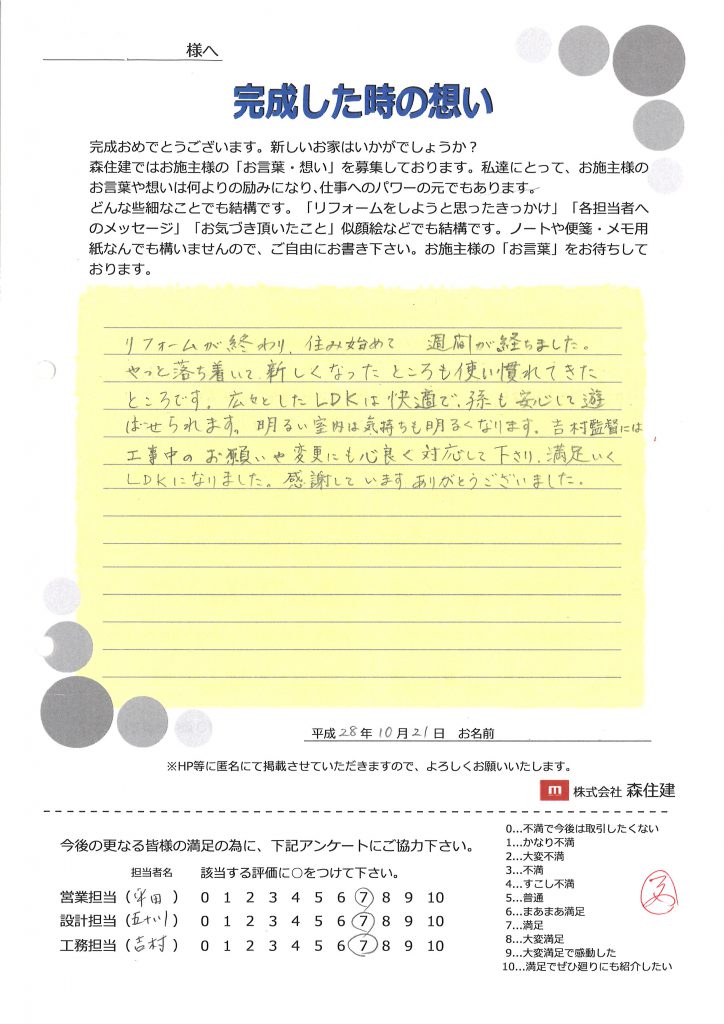 様へ
完成した時の想い
完成おめでとうございます。新しいお家はいかがでしょうか?
森住建ではお施主様の「お言葉・想い」を募集しております。私達にとって、お施主様の
お言葉や想いは何よりの励みになり、仕事へのパワーの元でもあります。
どんな些細なことでも結構です。「リフォームをしようと思ったきっかけ」「各担当者へ
のメッセージ」「お気づき頂いたこと」似顔絵などでも結構です。ノートや便箋・メモ用
紙なんでも構いませんので、ご自由にお書き下さい。お施主様の「お言葉」をお待ちして
おります。
リフォームが終わり、住み始めて 週間が経ちました。
やっと落ち着いて、新しくなったところも使い慣れてきた
ところです。広々としたLDKは快適で、孫も安心して遊
ばせられます。明るい室内は気持ちも明るくなります。吉村監督には
工事中のお願いや変更にも心良く対応して下さり、満足いく
LDKになりました。感謝しています ありがとうございました。
平成28年10月21日 お名前
※HP等に匿名にて掲載させていただきますので、よろしくお願いいたします。
m 株式会社 森住建
今後の更なる皆様の満足の為に、下記アンケートにご協力下さい。
担当者名 該当する評価に○をつけて下さい。
営業担当( 田 ) 0 1 2 3 4 5 6 7 8 9 10
設計担当(五十川) 0 1 2 3 4 5 6 7 8 9 10
工務担当(吉村) 0 1 2 3 4 5 6 7 8 9 10
0…不満で今後は取引したくない
1…かなり不満
2…大変不満
3…不満
4…すこし不満
5…普通
6…まあまあ満足
7…満足
8…大変満足
9…大変満足で感動した
10…満足でぜひ廻りにも紹介したい